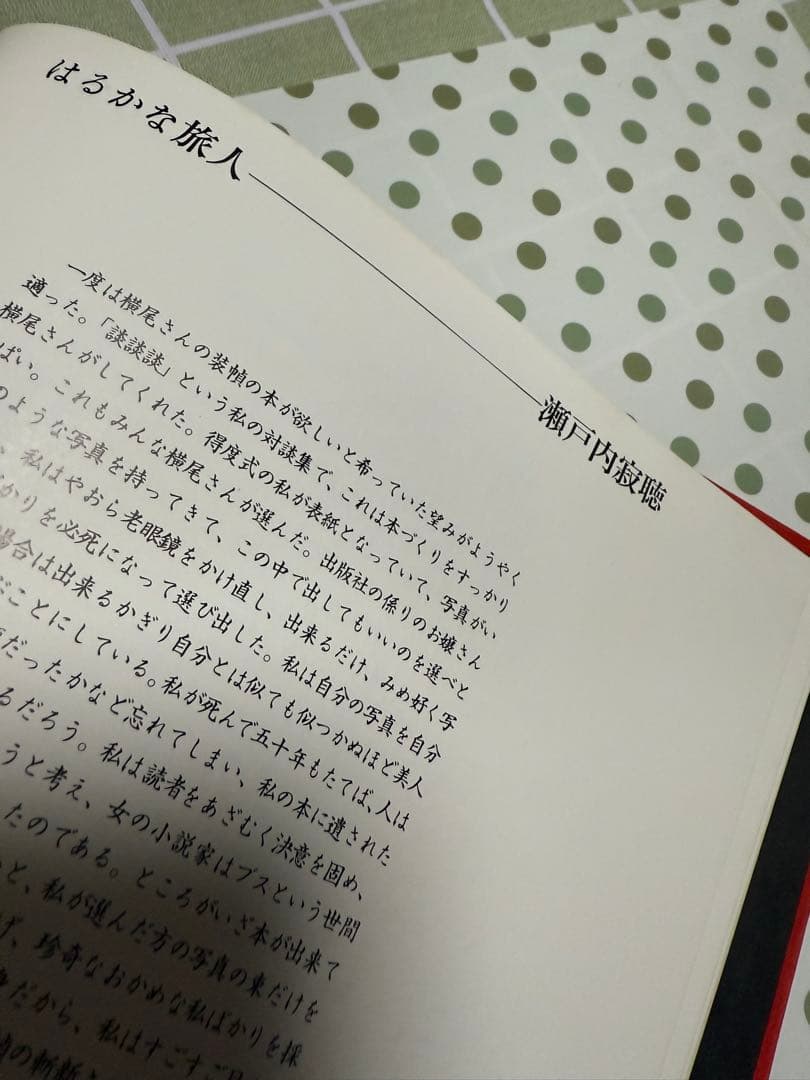 はるかな旅人――瀬戸内寂聴
一度は横尾さんの装幀の本が欲しいと希っていた望みがようやく
適った。「談談談」という私の対談集で、これは本づくりをすっかり
横尾さんがしてくれた。得度式の私が表紙となっていて、写真がい
ぱい。これもみんな横尾さんが選んだ。出版社の係りのお嬢さん
のような写真を持ってきて、この中で出してもいいのを選べと
私はやおら老眼鏡をかけ直し、出来るだけ、みめ好く写
かりを必死になって選び出した。私は自分の写真を自分
場合は出来るかぎり自分とは似ても似つかぬほど美人
ことにしている。私が死んで五十年もたてば、人は
だったかなど忘れてしまい、私の本に遺された
るだろう。私は読者をあざむく決意を固め、
うと考え、女の小説家はブスという世間
たのである。ところがいざ本が出来て
と、私が選んだ方の写真の束だけを
、珍奇なおかめな私ばかりを採
だから、私はすごすご
の斬新